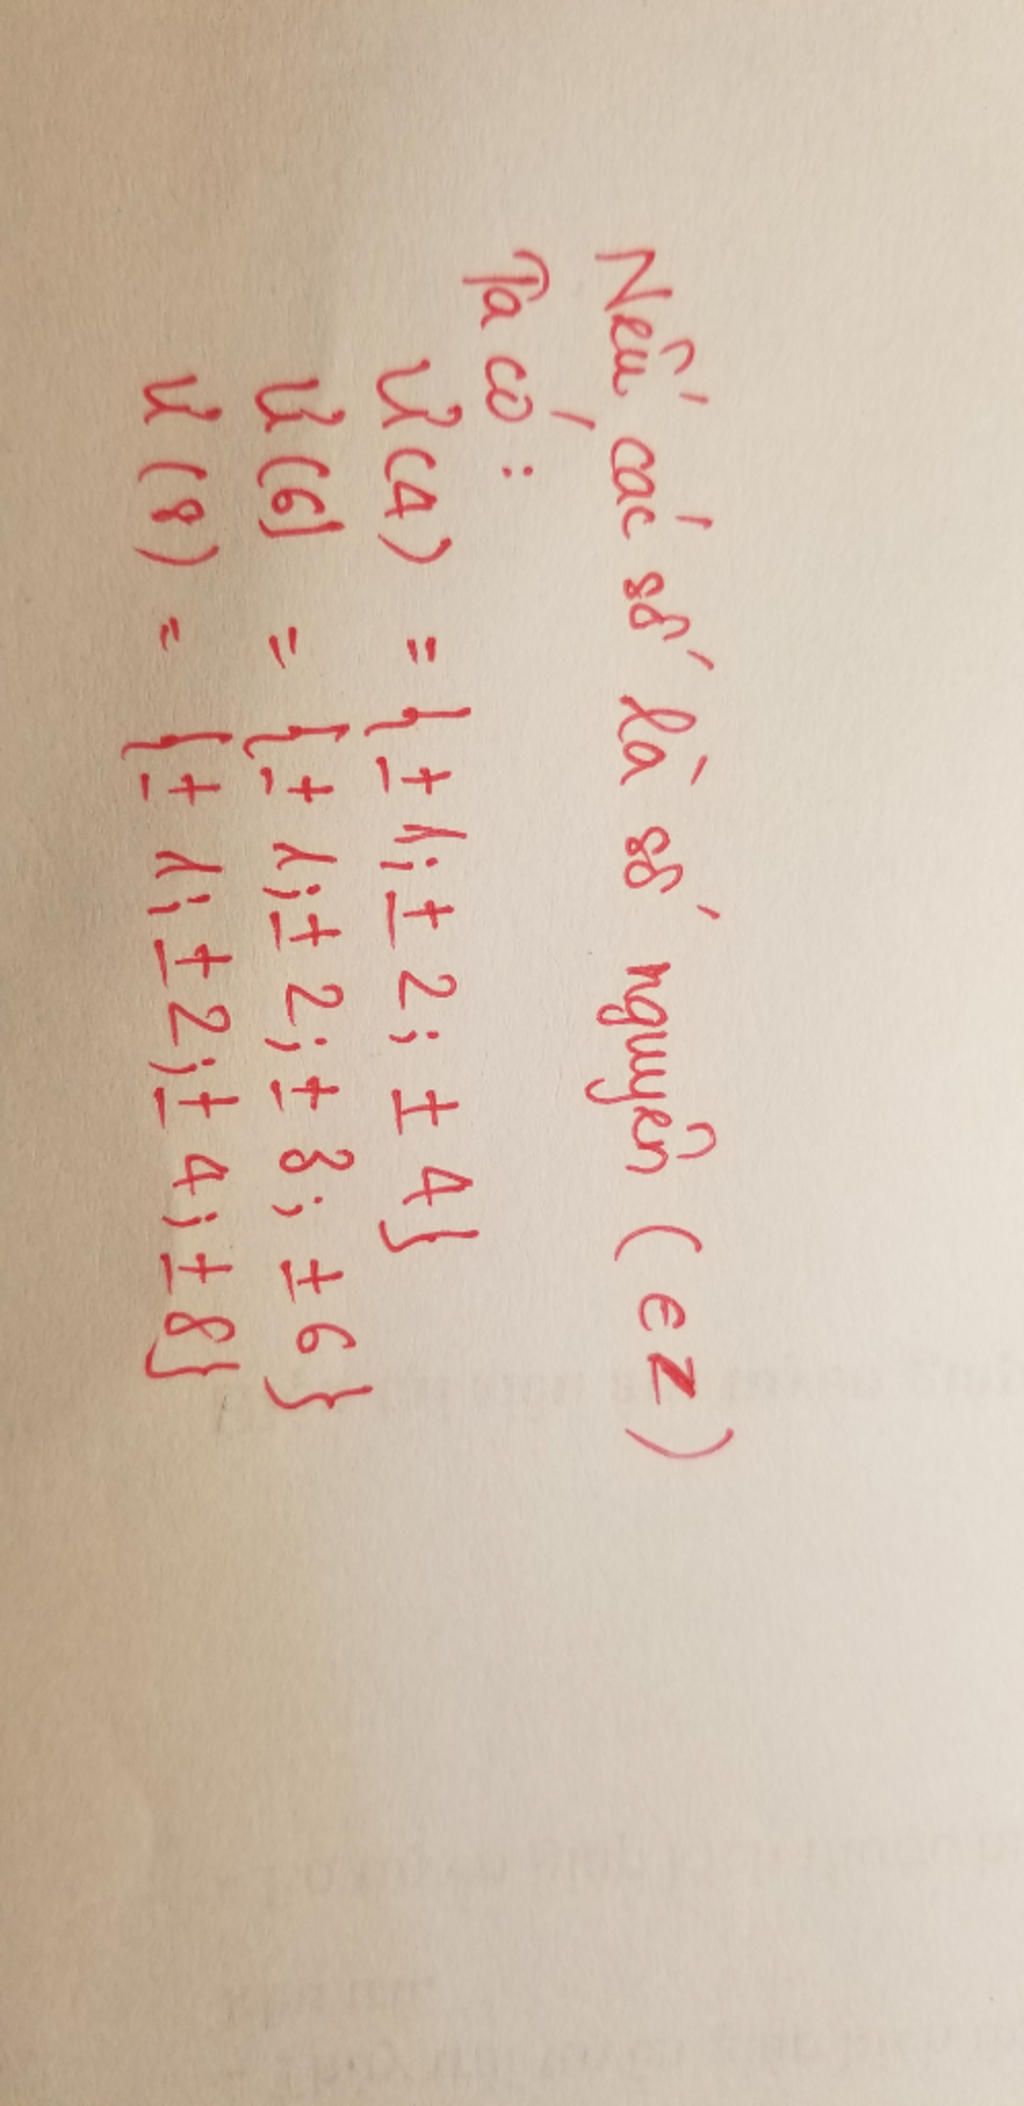 Nếu các số là số nguyên (∈ Z)
Ta có:
Ư(4) = {± 1; ± 2; ± 4}
Ư(6) = {± 1; ± 2; ± 3; ± 6}
Ư(8) = {± 1; ± 2; ± 4; ± 8}